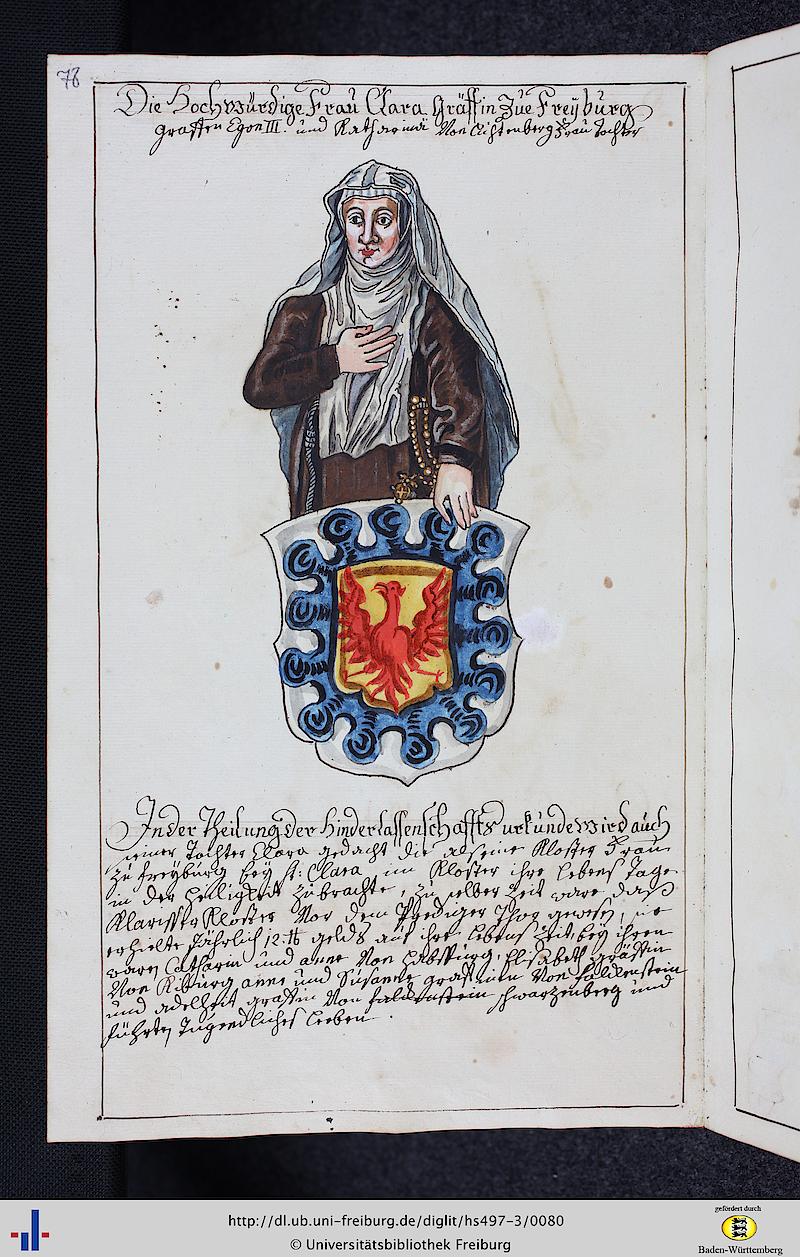 78
Die Hochwürdige Frau Clara Gräffin Zue Freyburg
Graffen Egon III. und Katharina Von Lichtenberg Frau Tochter
In der Theilung der Hinderlassenschaffts urkunde wird auch
einer Tochter Clara gedacht die als eine Kloster Frau
zu Freyburg bey St: Clara im Kloster ihre Lebens Tage
in der Heiligkeit zubrachte, zu selber Zeit ware das
Klarisser Kloster Vor dem Prediger Thor gewesen, sie
erhielte Jährlich 12 ℔ gelds auf ihre Lebens Zeit, bey ihren
waren Catharin und anna Von Habsburg, Elisabeth Gräffin
Von Kiburg anna und Susanna graffinen Von Falckenstein
und adelheit graffin Von Falckenstein schwarzenberg und
führten Tugendliches Leben.
http://dl.ub.uni-freiburg.de/diglit/hs497-3/0080
© Universitätsbibliothek Freiburg
gefördert durch
Baden-Württemberg